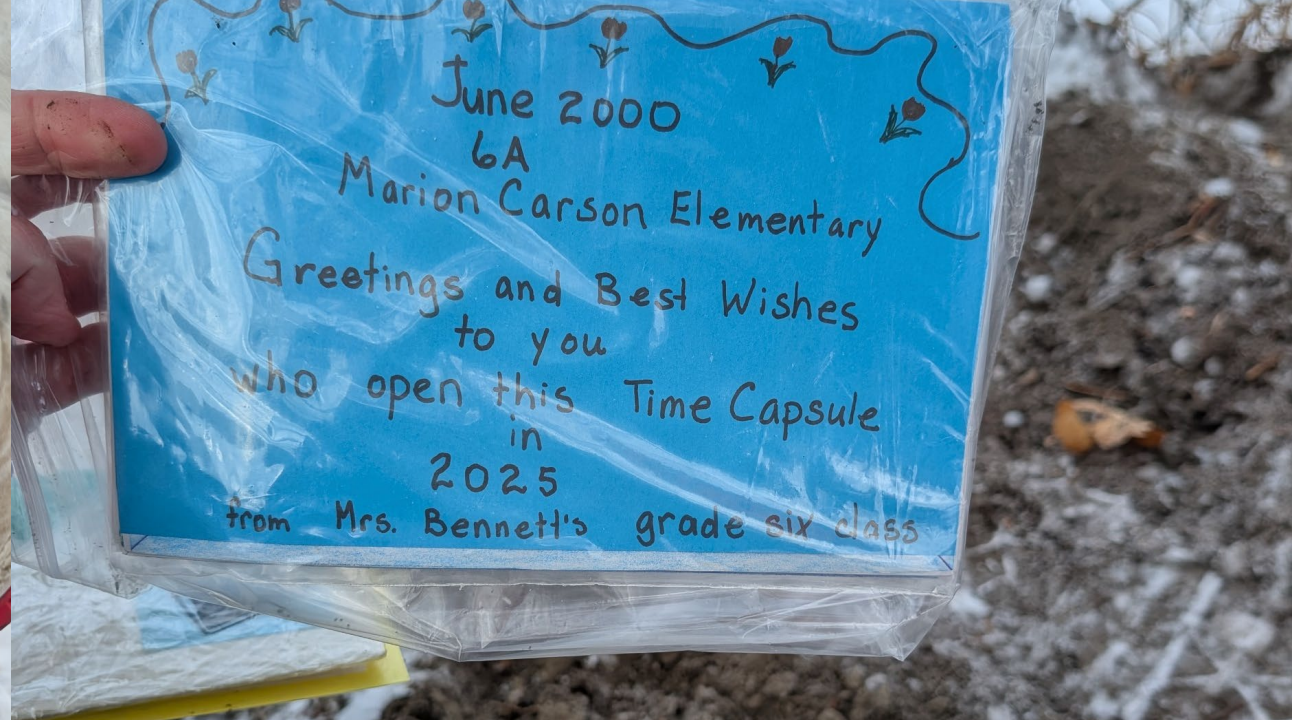 June 2000
6A
Marion Carson Elementary
Greetings and Best Wishes
to you
who open this Time Capsule
in
2025
from Mrs. Bennett's grade six class